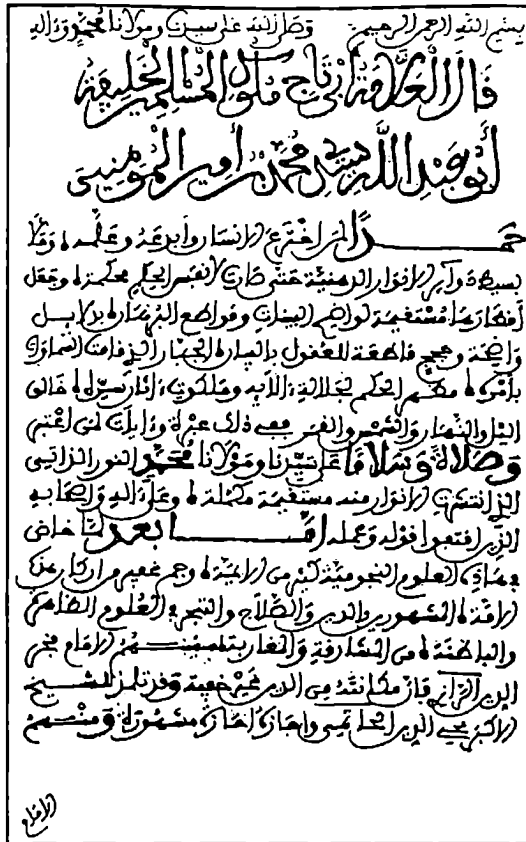 بسم الله الرحمن الرحيم وصلى الله على سيدنا ومولانا محمد وءاله
قال العلامة ابن تاج ملوك المسلمين الخليفة
أبو عبد الله سيدي محمد بن أمير المومنين
حمدا لمن اخترع الانسان وأبدعه وعلمه
بسيط دواير الانوار الذهنية حتى صارت لانفس الحكم محكمة وجعل
أفكارها مستقيمة لواضح البيان وقواطع البرهان بدلايل
واضحة وحجج قاطعة للعقول بالمبار الجبار الذي قامت السماوات
بأمره مظهر الحكم لجلالة ءالايه وملكوت اثار خالق
اليل والنهار والشمس والقمر ففي ذلك عبرة وءايات لمن اعتبر
وصلاة وسلاما على سيدنا ومولانا محمد النور الذاتي
الذي انتشرت الانوار منه مستقيمة مكملة وعلى ءاله وأصحابه
الذين اقتفوا قوله وعمله أما بعد لما خاض
في هاذه العلوم النجومية كثير من الايمة وجم غفير من اركان هذه
الامة المشهورين بالدين والصلاح والتبحر في العلوم الظاهرة
والباطنة من المشارقة والمغاربة فمنهم الامام فخر
الدين الرازي فإن مكانته في الدين غير خفية وقد تلمذ للشيخ
الاكبر محيي الدين الحاتمي واجازه اجازة مشهورة ومنهم
الامام